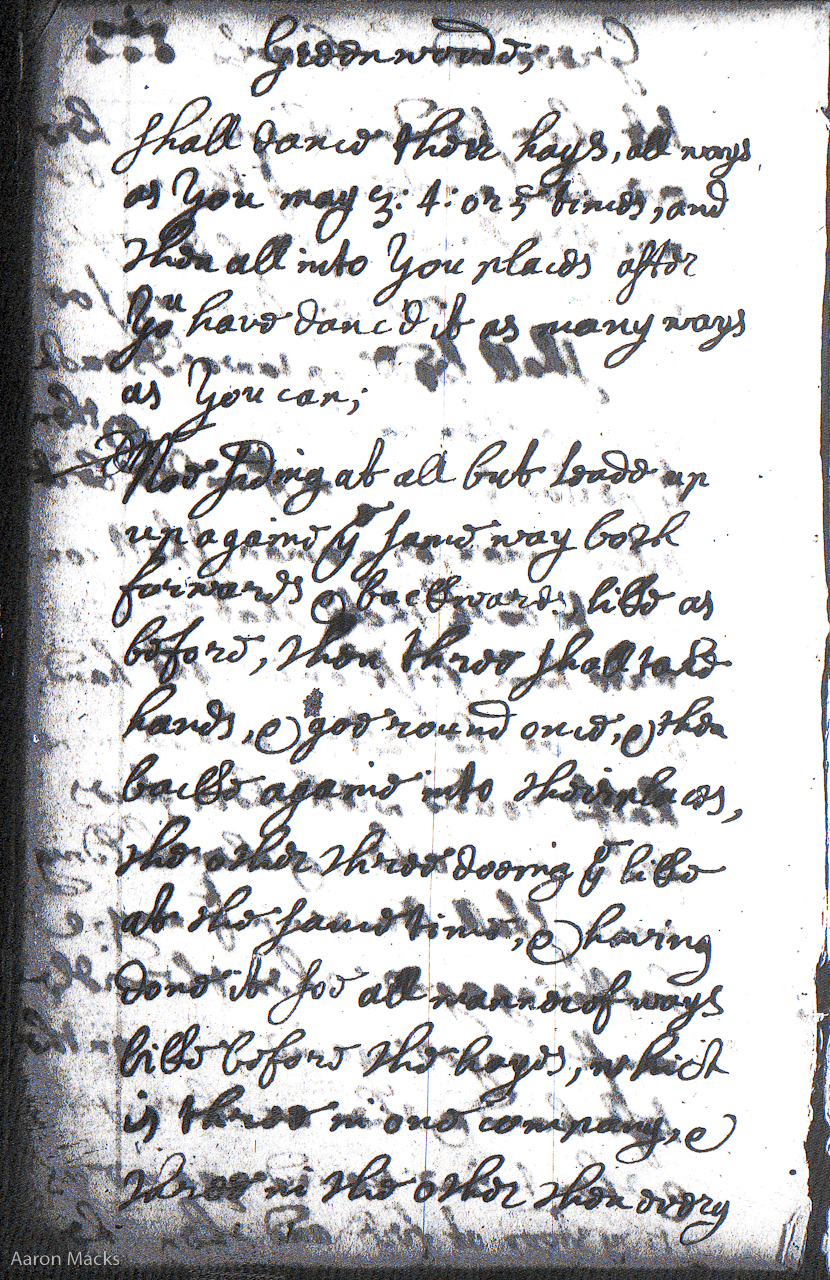 Greenwoode,
shall dance their hays, all ways
as You may 3: 4: or 5 times, and
then all into You places after
Yoᵘ have danc'd it as many ways
as You can;
Noe siding at all but leade up
up againe yᵉ same way both
forwards & backwards, like as
before, then three shall take
hands, & goe round once, & then
backe againe into theire places,
the other three doeing yᵉ like
at the same time, & having
done it soe all manner of ways
like before the hayes, which
is three in one company, &
three in the other then every
Aaron Macks